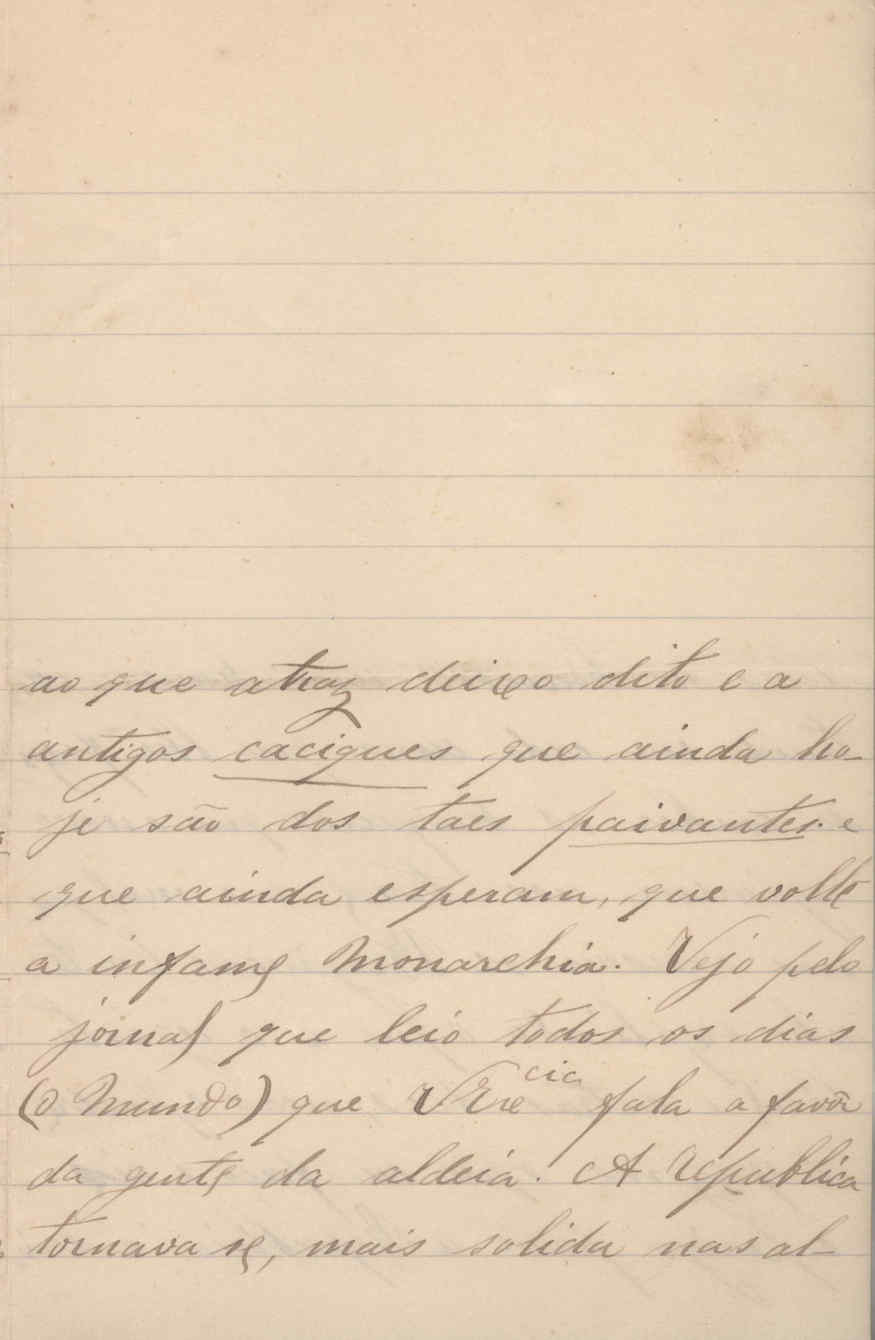 ao que atraz deixo dito e a
antigos caciques que ainda ho-
je são dos taes paivantes e
que ainda esperam, que volte
a infame Monarchia. Vejo pelo
jornal que leio todos os dias
(o Mundo) que V Exe cia fala a favôr
da gente da aldeia. A Republica
tornava se, mais solida nas al-